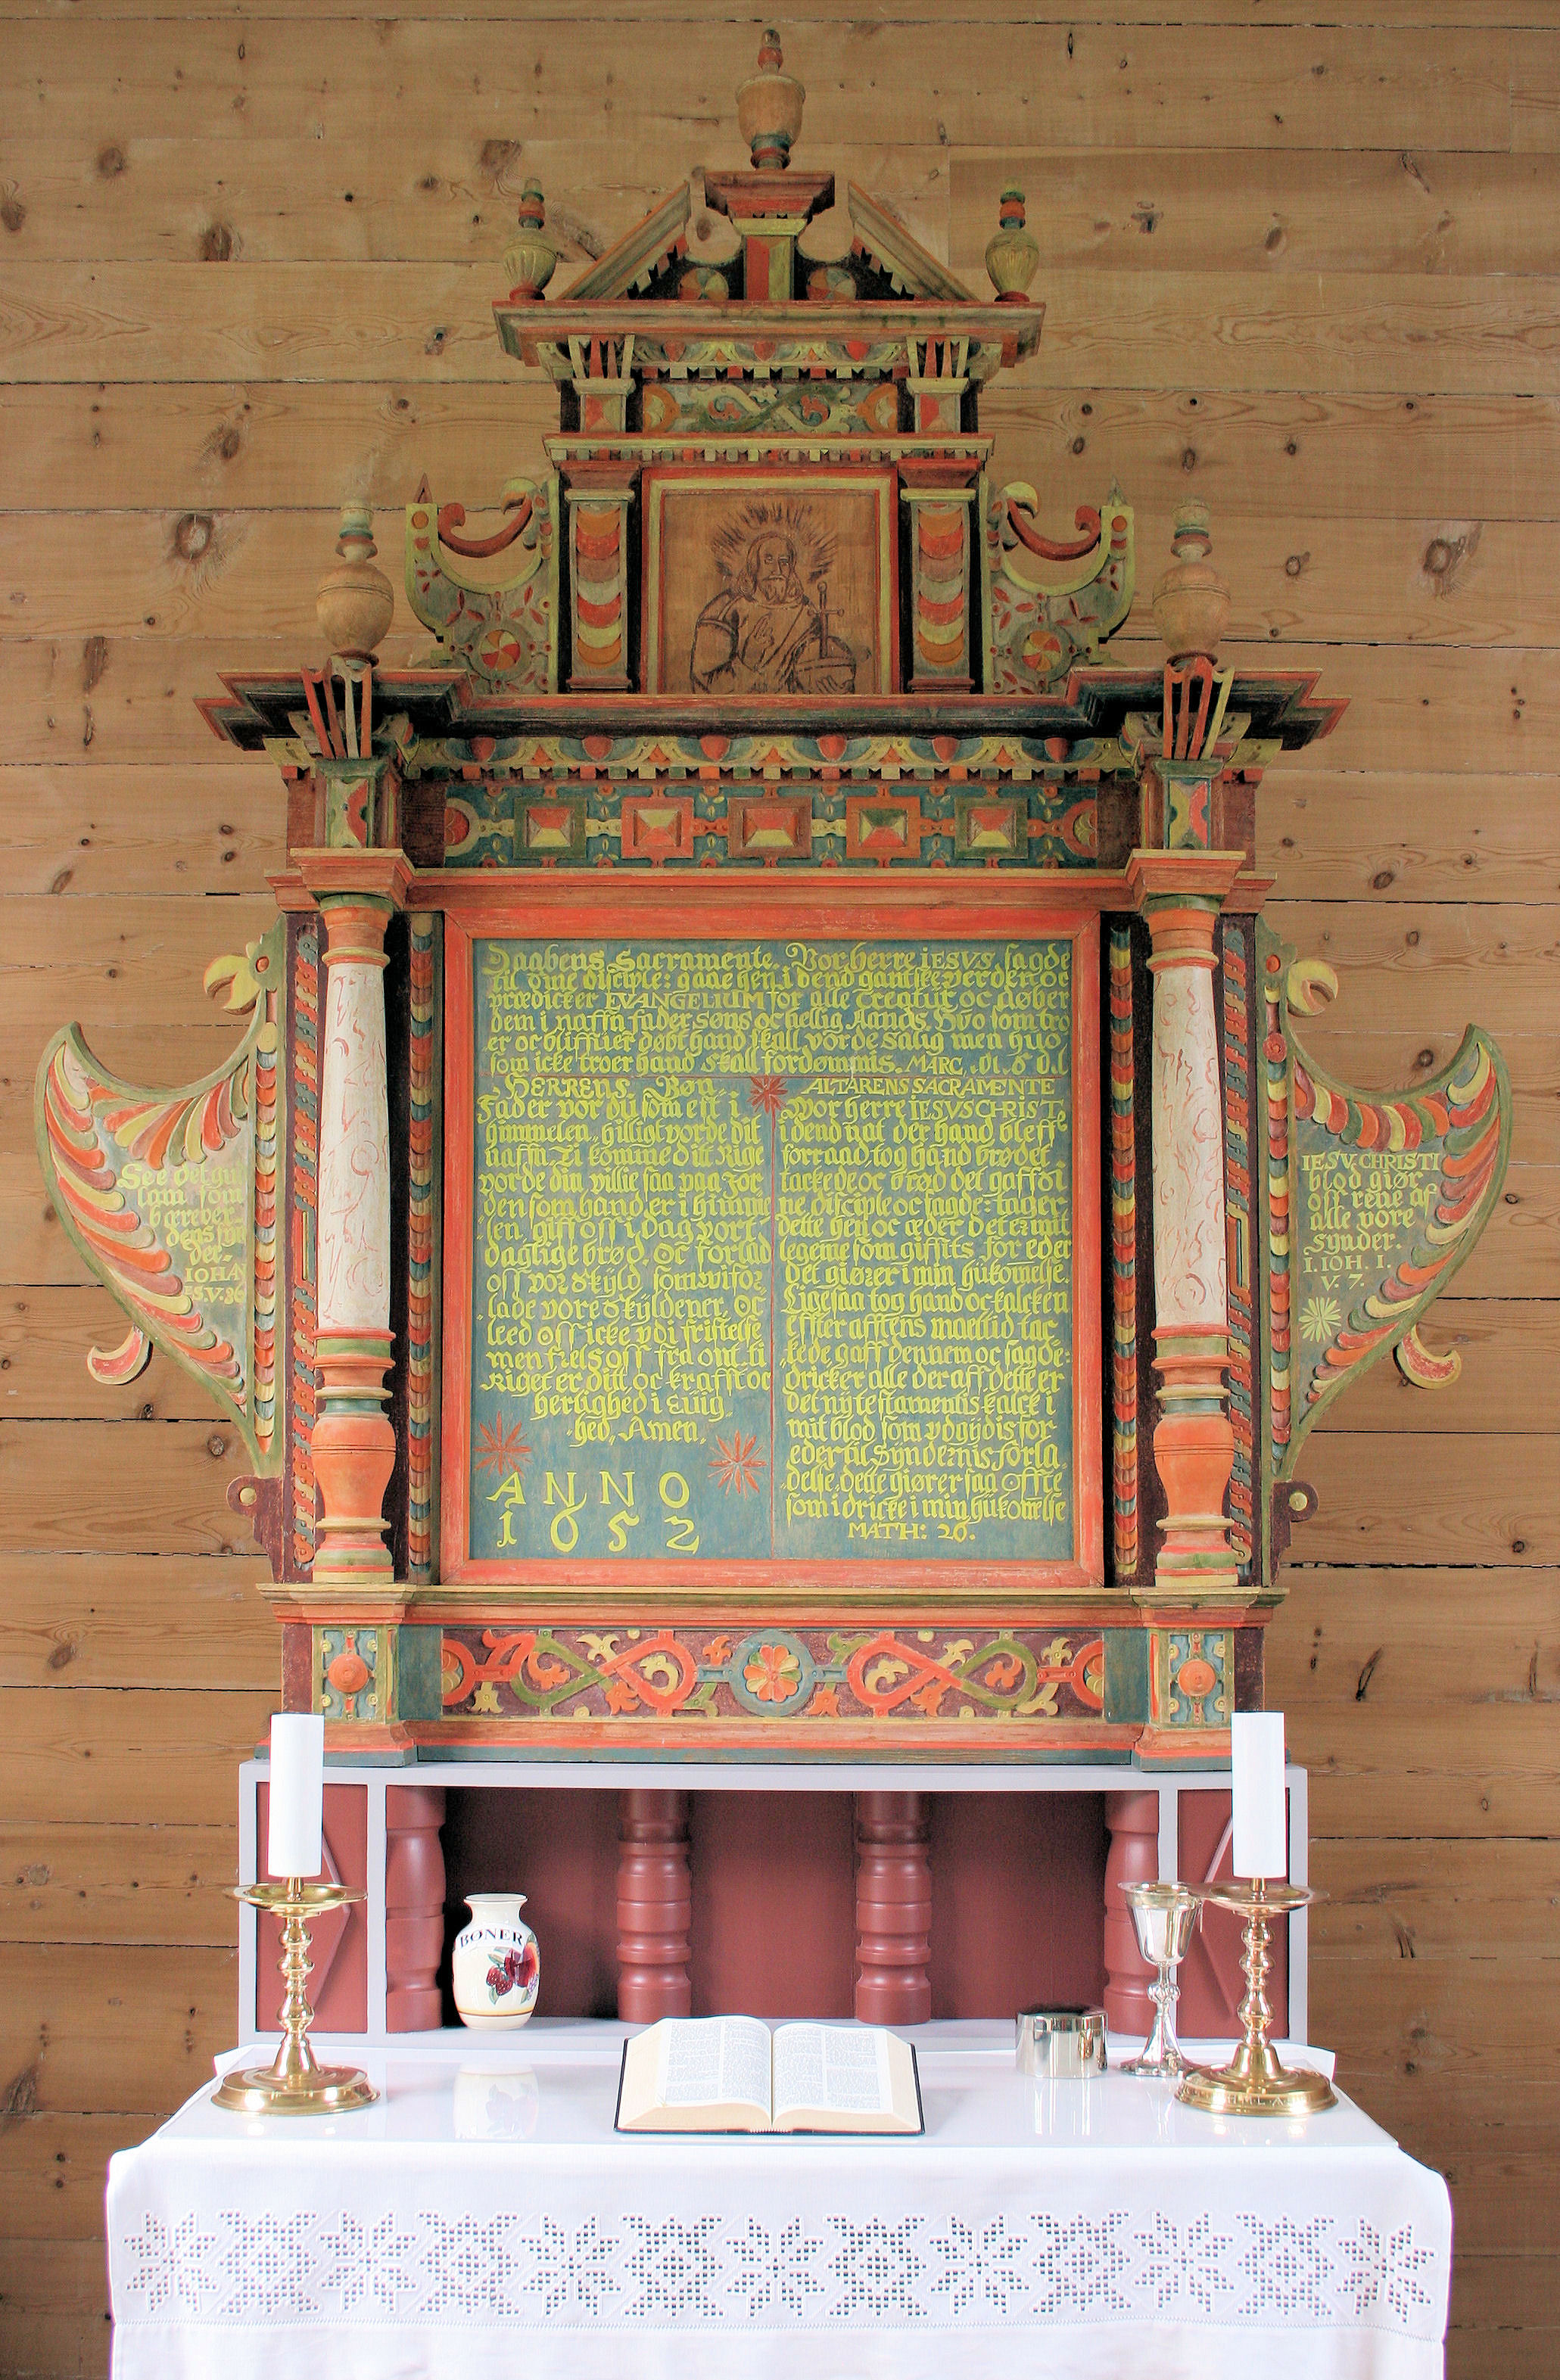 Daabens Sacramente. Vor herre IESVS, sagde
til sine disciple: gaae hen i dend gantske verden oc
prædicker EVANGELIUM for alle Creatur oc døber
dem i naffn fader søns oc hellig Aands. Hvo som tro
er oc bliffuer døbt hand skall vorde salig men huo
som icke troer hand skall fordømmis. MARC.
HERRENS Bøn
Fader vor du som est i
himmelen, hilligt vorde dit
naffn. Ti komme ditt Rige
vorde din villie saa paa Jor
den som hand er i himme
len, giff oss i Dag vort
daglige brød, Oc forlad
oss vor skyld, som wi for
lade vore skyldener, Oc
leed oss icke vdi fristelse
men frels oss fra ont ti
Riget er ditt oc krafft oc
herlighed i Euig
hed, Amen,
ANNO
1652
ALTARENS SACRAMENTE
Vor herre IESVS CHRIST,
i dend nat der hand bleff
forraad tog hand brødet
tackede oc brød det gaff si
ne disciple oc sagde: tager
dette hen oc æder det er mit
legeme som giffits for eder
Det giører i min hukomelse.
Ligesaa tog hand oc kalcken
effter afftens maeltid tac
kede gaff dennem oc sagde:
dricker alle der aff, dette er
det ny testamentis kalck i
mit blod som vdgydis for
eder til Syndernis forla
delse, dette giører saa offte
som i dricke i min hukomelse
MATH: 26.
See det
lam som
bærreber
dens syn
der.
IOHAN
ES. V. 36
IESV CHRISTI
blod giør
oss rene af
alle vore
synder.
I. IOH. I.
V. 7.
BØNER